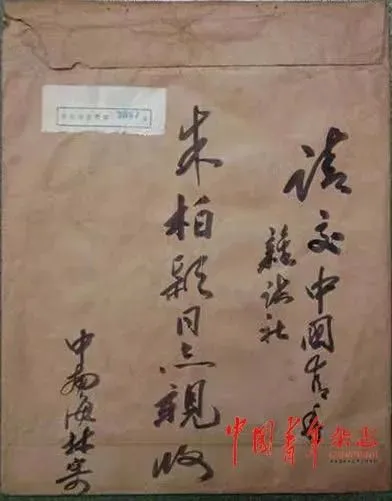 请交中国青年
杂志社
朱柏颖同志亲收
中南海林寄
3057
中国青年杂志